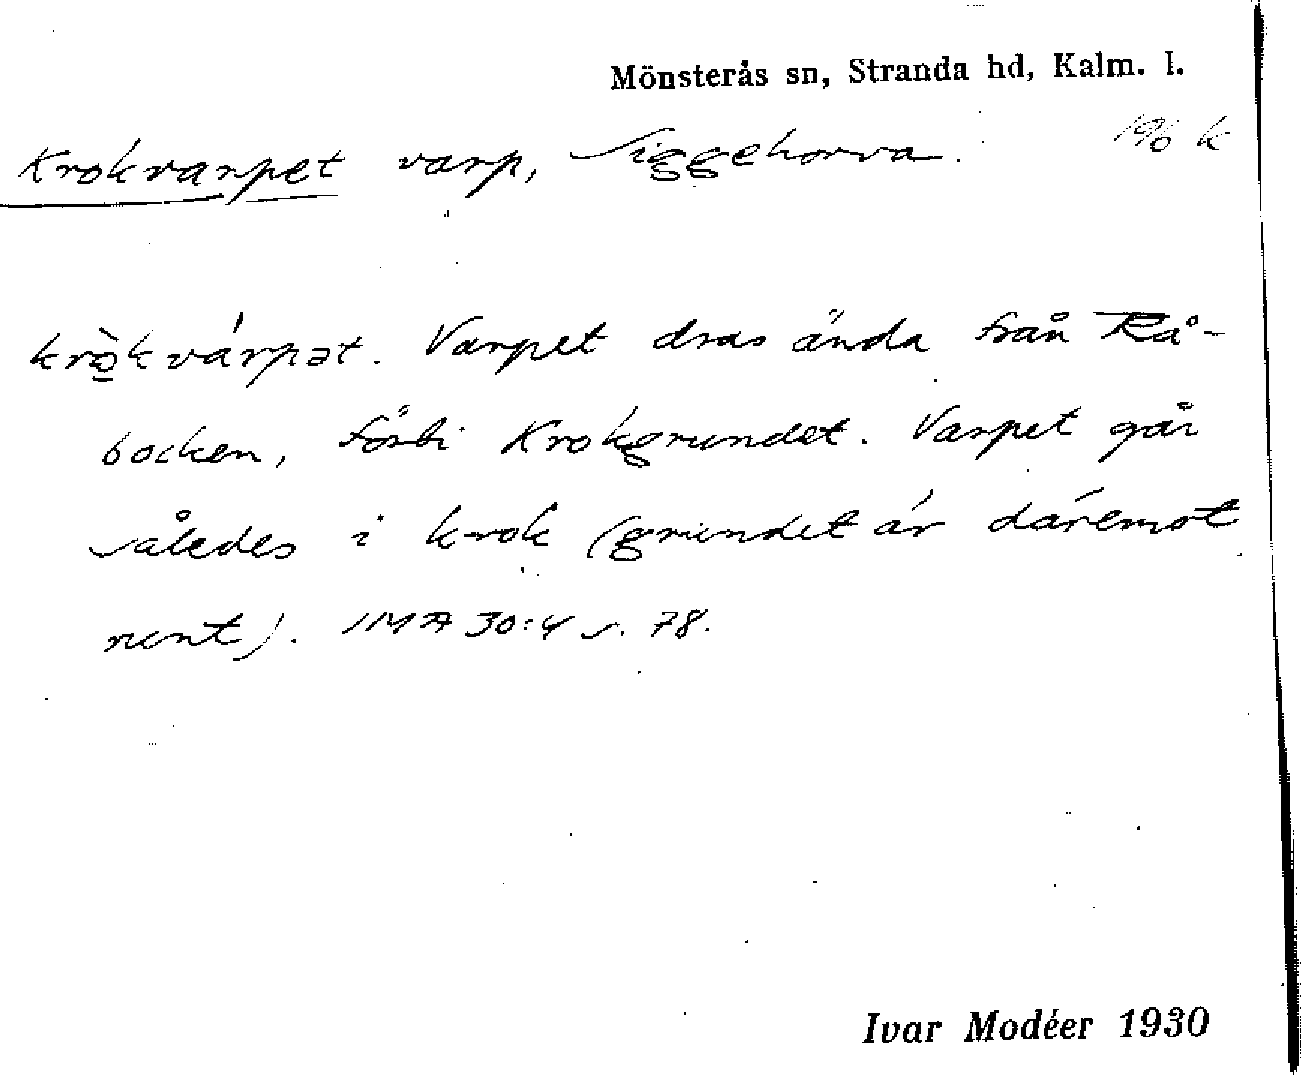 Mönsterås sn, Stranda hd, Kalm. l.
196 k
Krokvarpet varp, Siggehorva.
krò̠kvárpət. Varpet dras ända från Rå-
bocken, förbi Krokgrundet. Varpet går
således i krok (grundet är däremot
runt). IMA 30:4 s. 78.
Ivar Modéer 1930